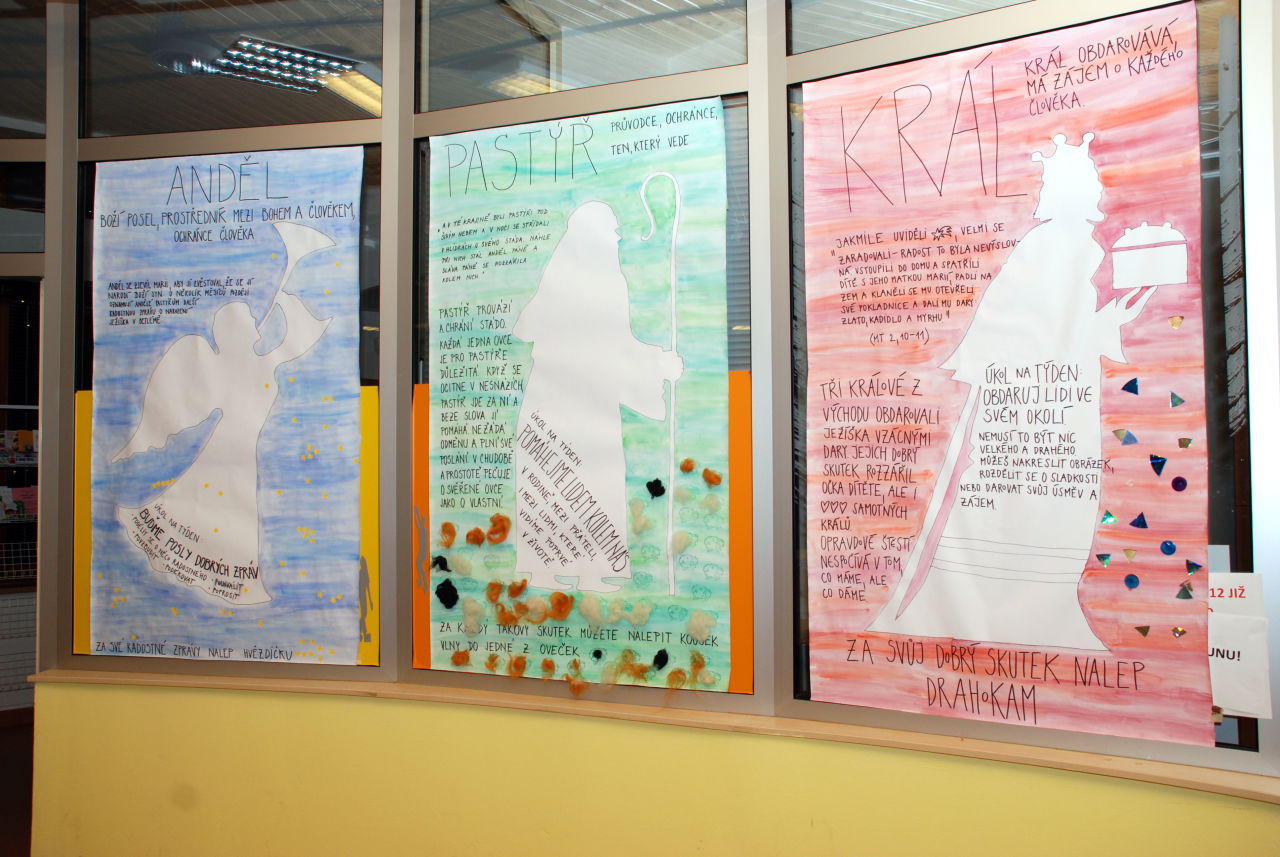 ANDĚL
BOŽÍ POSEL, PROSTŘEDNÍK MEZI BOHEM A ČLOVĚKEM,
OCHRÁNCE ČLOVĚKA
ANDĚL SE ZJEVIL MARII, ABY JÍ ZVĚSTOVAL, ŽE SE JÍ
NARODÍ BOŽÍ SYN. O NĚKOLIK MĚSÍCŮ POZDĚJI
OZNAMUJÍ ANDĚLÉ PASTÝŘŮM DALŠÍ
RADOSTNOU ZPRÁVU O NAROZENÍ
JEŽÍŠKA V BETLÉMĚ.
ÚKOL NA TÝDEN
BUĎME POSLY DOBRÝCH ZPRÁV
· PODĚLIT SE O NĚCO RADOSTNÉHO · POCHVÁLIT
· POVZBUDIT · PODĚKOVAT · POPROSIT
ZA SVÉ RADOSTNÉ ZPRÁVY NALEP HVĚZDIČKU
PASTÝŘ
PRŮVODCE, OCHRÁNCE,
TEN, KTERÝ VEDE
"A V TÉ KRAJINĚ BYLI PASTÝŘI POD
ŠIRÝM NEBEM A V NOCI SE STŘÍDALI
V HLÍDKÁCH U SVÉHO STÁDA. NÁHLE
PŘI NICH STÁL ANDĚL PÁNĚ A
SLÁVA PÁNĚ SE ROZZÁŘILA
KOLEM NICH."
PASTÝŘ PROVÁZÍ
A CHRÁNÍ STÁDO.
KAŽDÁ JEDNA OVCE
JE PRO PASTÝŘE
DŮLEŽITÁ. KDYŽ SE
OCITNE V NESNÁZÍCH,
PASTÝŘ JDE ZA NÍ A
BEZE SLOVA JÍ
POMÁHÁ. NEŽÁDÁ
ODMĚNU A PLNÍ SVÉ
POSLÁNÍ V CHUDOBĚ
A PROSTOTĚ. PEČUJE
O SVĚŘENÉ OVCE
JAKO O VLASTNÍ.
ÚKOL NA TÝDEN:
POMÁHEJME LIDEM KOLEM NÁS
V RODINĚ, MEZI PŘÁTELI,
I MEZI LIDMI, KTERÉ
VIDÍME POPRVÉ
V ŽIVOTĚ.
ZA KAŽDÝ TAKOVÝ SKUTEK MŮŽETE NALEPIT KOUSEK
VLNY DO JEDNÉ Z OVEČEK
KRÁL
KRÁL OBDAROVÁVÁ,
MÁ ZÁJEM O KAŽDÉHO
ČLOVĚKA.
JAKMILE UVIDĚLI , VELMI SE
"ZARADOVALI - RADOST TO BYLA NEVÝSLOV-
NÁ. VSTOUPILI DO DOMU A SPATŘILI
DÍTĚ S JEHO MATKOU MARIÍ, PADLI NA
ZEM A KLANĚLI SE MU. OTEVŘELI
SVÉ POKLADNICE A DALI MU DARY:
ZLATO, KADIDLO A MYRHU"
(MT 2, 10-11)
TŘI KRÁLOVÉ Z
VÝCHODU OBDAROVALI
JEŽÍŠKA VZÁCNÝMI
DARY. JEJICH DOBRÝ
SKUTEK ROZZÁŘIL
OČKA DÍTĚTE, ALE I
♡♡♡ SAMOTNÝCH
KRÁLŮ.
OPRAVDOVÉ ŠTĚSTÍ
NESPOČÍVÁ V TOM,
CO MÁME, ALE
CO DÁME.
ÚKOL NA TÝDEN:
OBDARUJ LIDI VE
SVÉM OKOLÍ.
NEMUSÍ TO BÝT NIC
VELKÉHO A DRAHÉHO
MŮŽEŠ NAKRESLIT OBRÁZEK,
ROZDĚLIT SE O SLADKOSTI
NEBO DAROVAT SVŮJ ÚSMĚV A
ZÁJEM.
ZA SVŮJ DOBRÝ SKUTEK NALEP
DRAHOKAM
12 JIŽ
UNU!